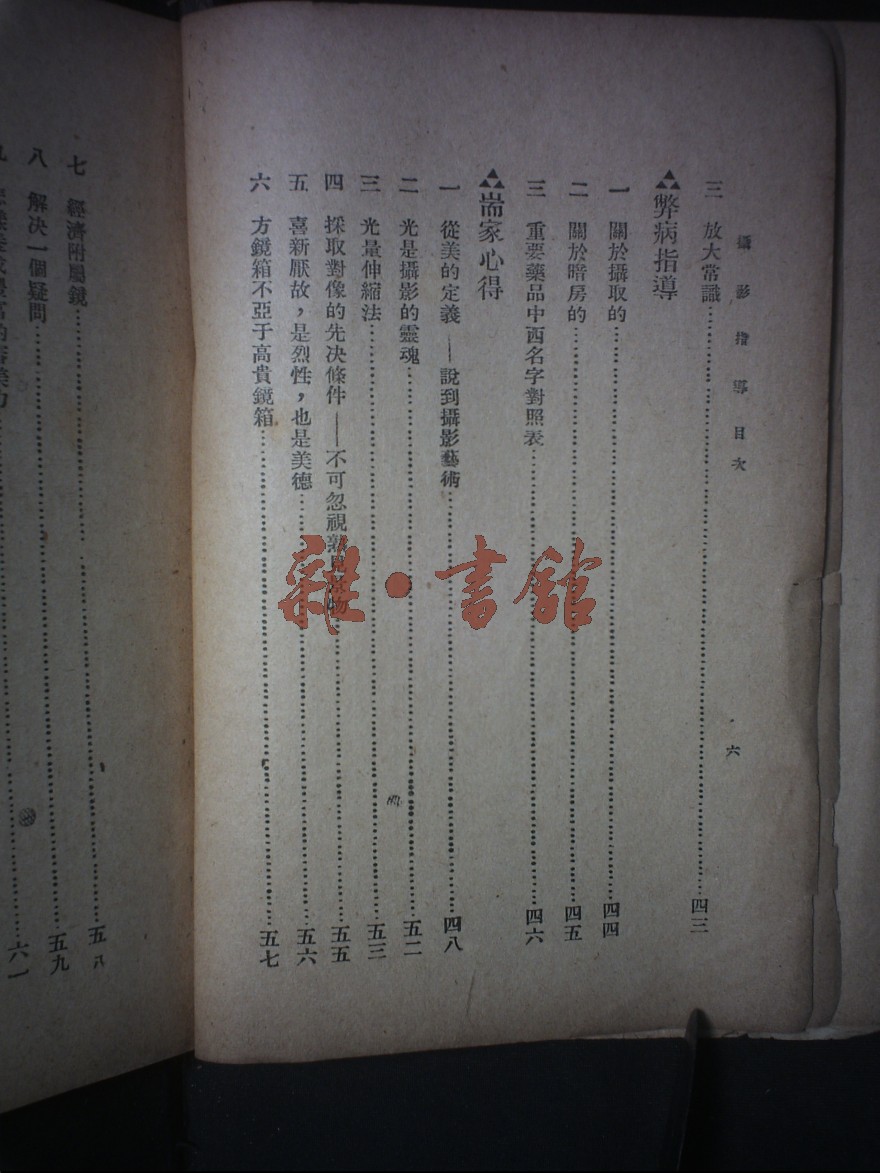 攝影指導目次
六
三 放大常識……四三
弊病指導
一 關於攝取的……四四
二 關於暗房的……四五
三 重要藥品中西名字對照表……四六
耑家心得
一 從美的定義——說到攝影藝術……四八
二 光是攝影的靈魂……五二
三 光量伸縮法……五三
四 採取對像的先決條件——不可忽視……五五
五 喜新厭故，是烈性，也是美德……五六
六 方鏡箱不亞于高貴鏡箱……五七
七 經濟附屬鏡……五八
八 解決一個疑問……五九
六一
雜·書館